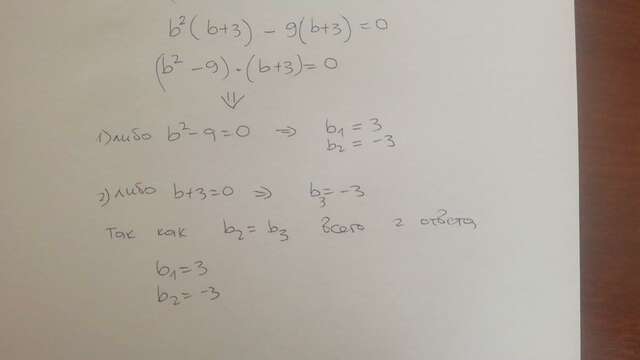 b²(b+3) - 9(b+3) = 0
(b² - 9) · (b+3) = 0
⇓
1) либо b² - 9 = 0 ⇒ b₁ = 3
b₂ = -3
2) либо b+3 = 0 ⇒ b₃ = -3
Так как b₂ = b₃ всего 2 ответа
b₁ = 3
b₂ = -3